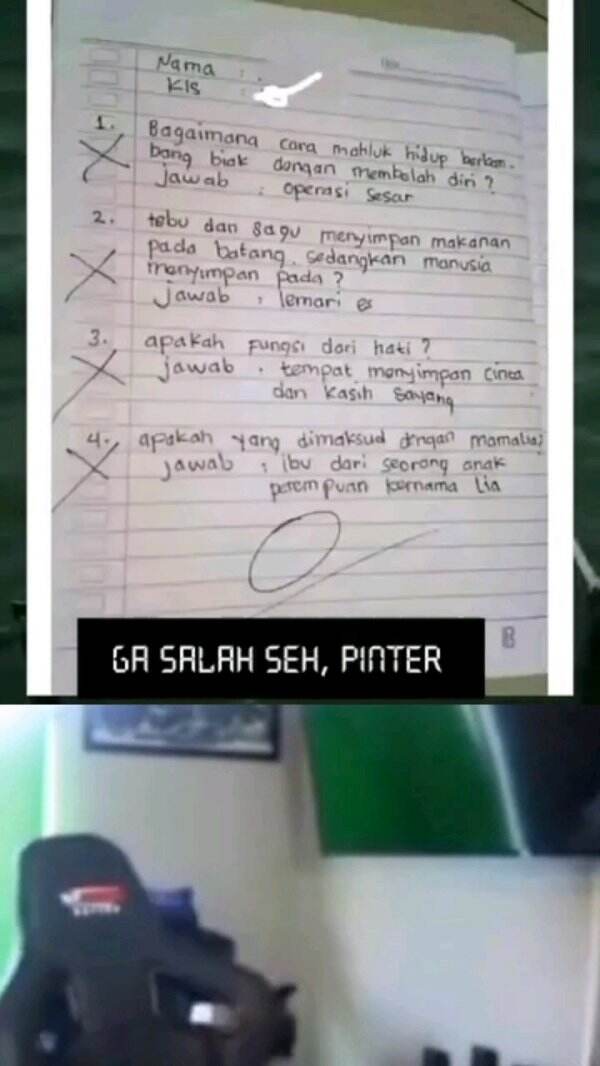 Nama : .
Kls :
1. Bagaimana cara mahluk hidup berkem-
bang biak dengan membelah diri ?
jawab : operasi sesar
2. tebu dan sagu menyimpan makanan
pada batang. sedangkan manusia
menyimpan pada ?
jawab : lemari es
3. apakah fungsi dari hati ?
jawab : tempat menyimpan cinta
dan kasih sayang
4. apakah yang dimaksud dengan mamalia?
jawab : ibu dari seorang anak
perempuan bernama Lia
GA SALAH SEH, PINTER